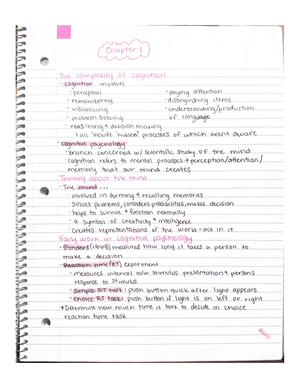 Chapter 1
The complexity of cognition
· cognition involves
· perception
· paying attention
· remembering
· distinguishing items
· visualizing
· understanding/production
of language
· problem solving
· reasoning + decision making
* all include "hidden" processes of which arent aware
· cognitive psychology
· branch concerned w/ scientific study of the mind
· cognition refers to mental processes + perception/attention/
memory that our mind creates
Thinking about the mind
· The mind...
· involved in forming + recalling memories
· solves problems, considers possibilities, makes decisions
· helps to survive + function normally
· a symbol of creativity + intelligence
· creates representations of the world - act in it
Early work in cognitive psychology
· Donders (1868) measured how long it takes a person to
make a decision
· Reaction time (RT) experiment
· measures interval b/w stimulus presentation + persons
response to stimulus
· simple RT task: push button quick after light appears
· choice RT task: push button if light is on left or right
* Determine how much time it took to decide in choice
reaction time task